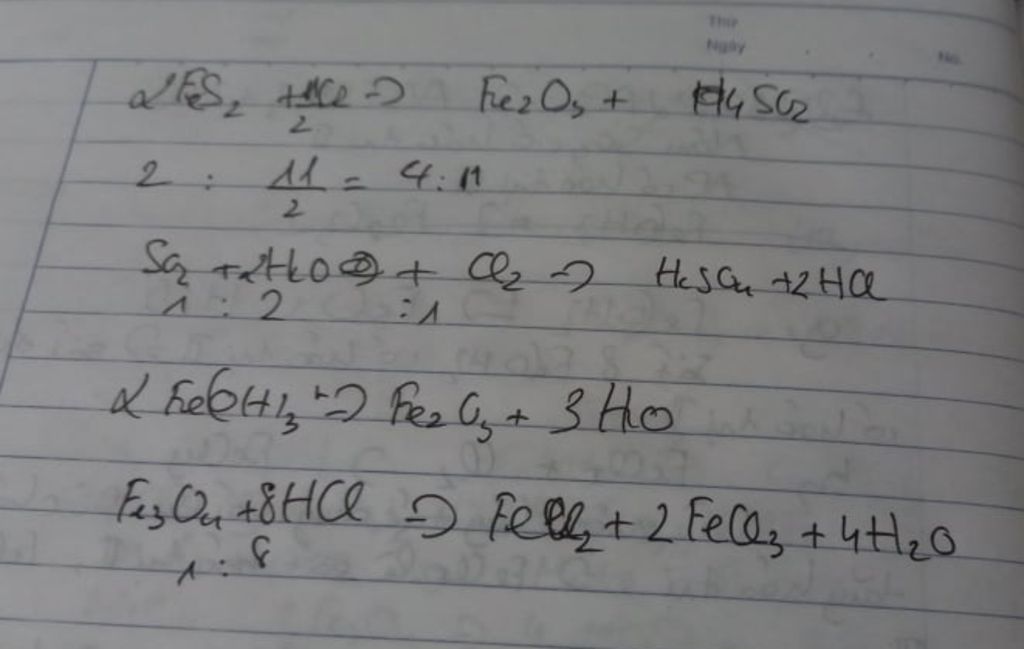 Thứ
Ngày No.
2FeS₂ + 11/2 O₂ => Fe₂O₃ + 4SO₂
2 : 11/2 = 4 : 11
SO₂ + 2H₂O + Cl₂ => H₂SO₄ + 2HCl
1 : 2 : 1
2Fe(OH)₃ => Fe₂O₃ + 3H₂O
Fe₃O₄ + 8HCl => FeCl₂ + 2FeCl₃ + 4H₂O
1 : 8